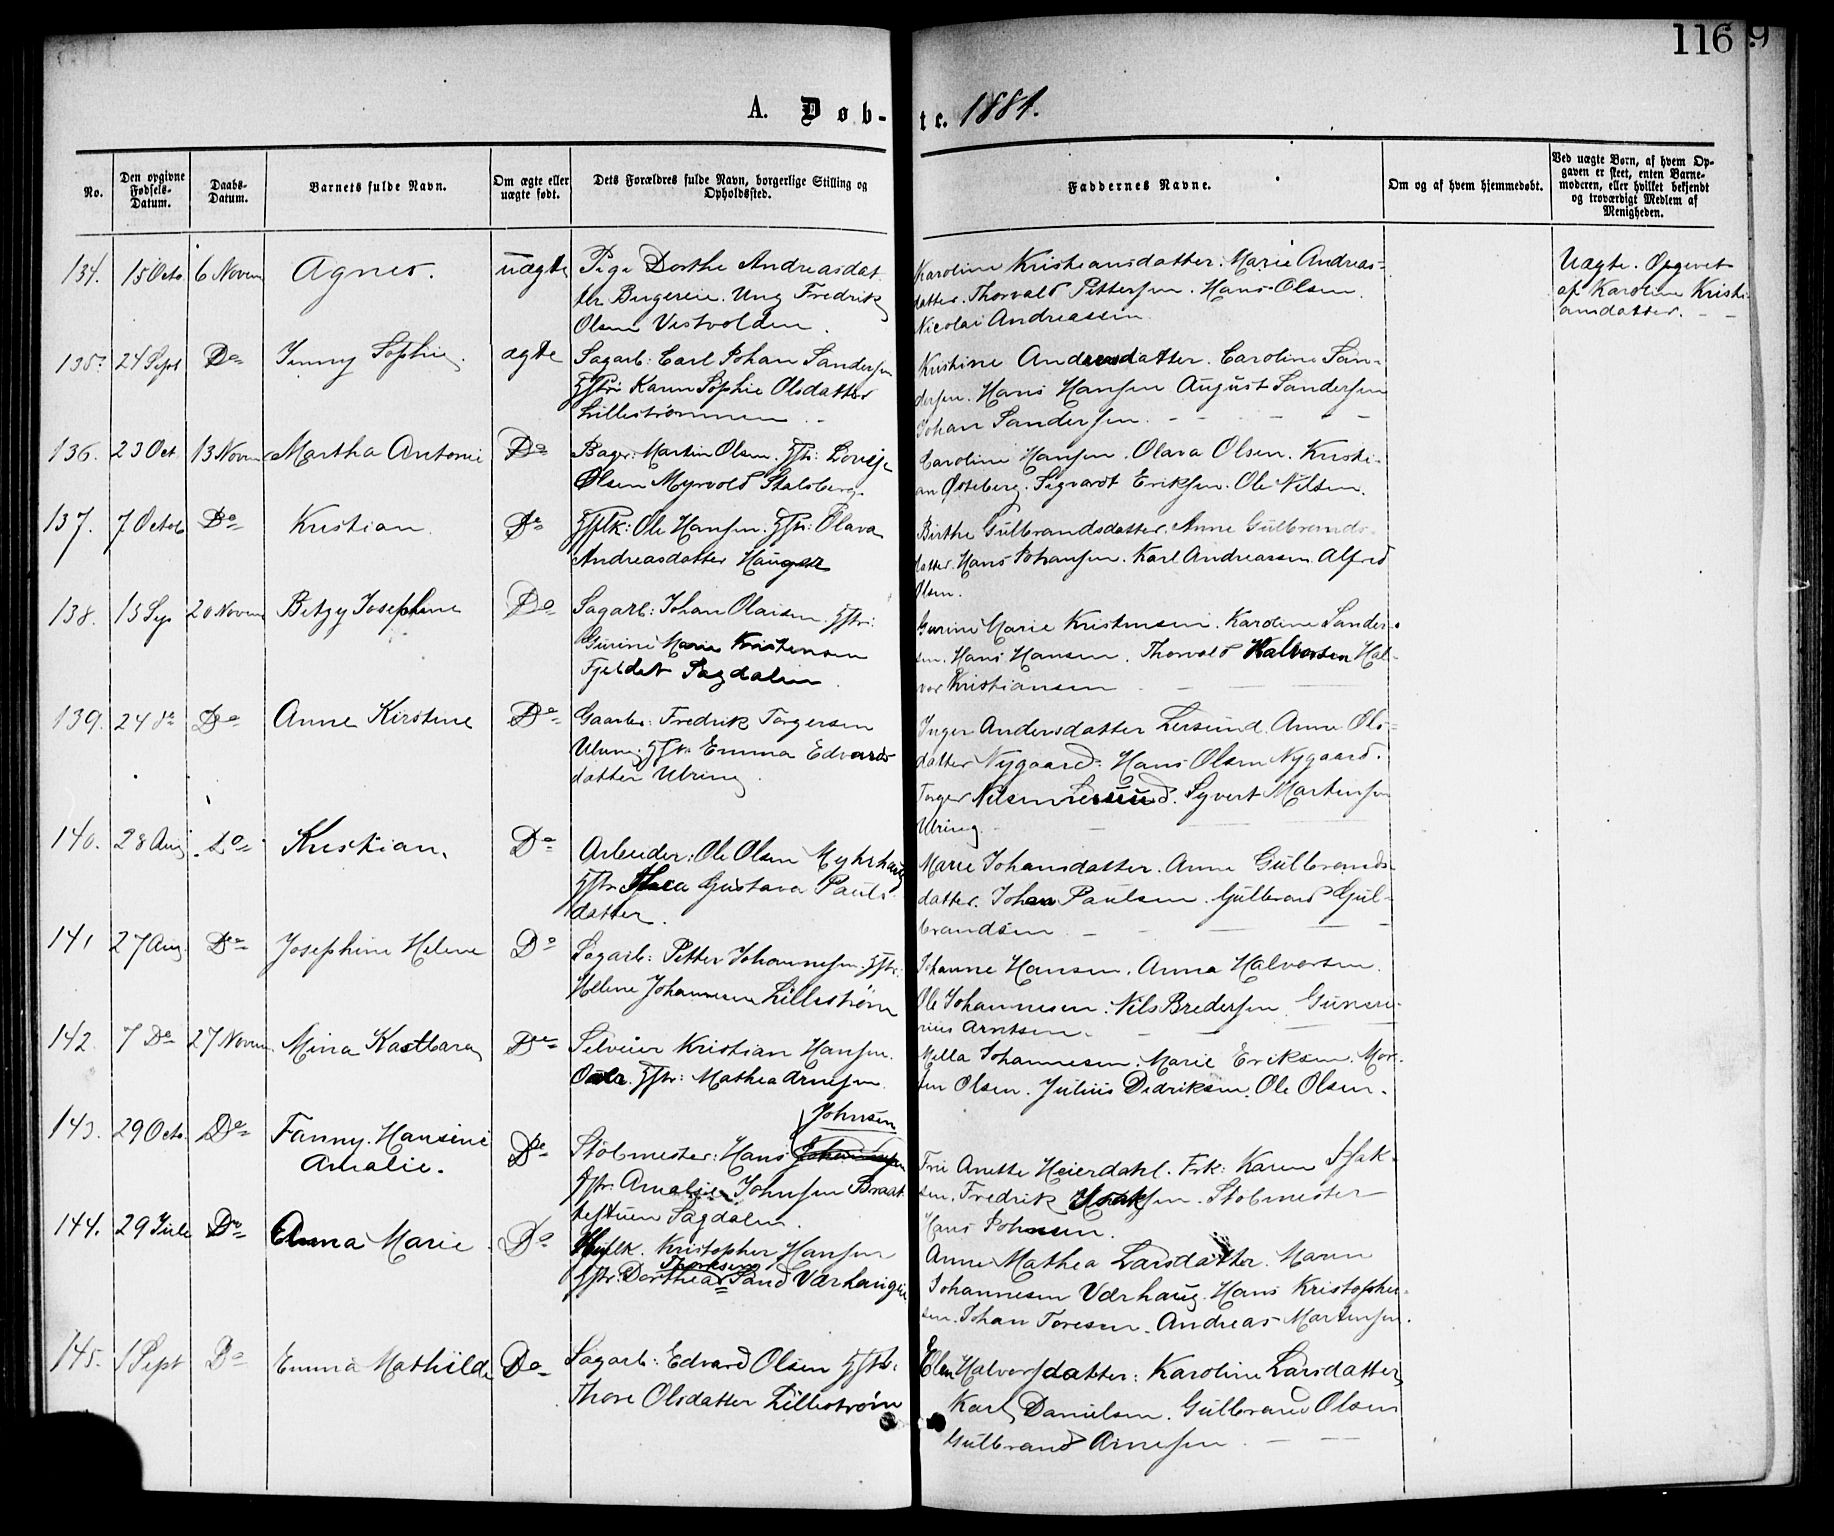 116
9
A. Døb-
te. 1881.
No.
Den opgivne Fødsels-Datum.
Daabs-Datum.
Barnets fulde Navn.
Om ægte eller uægte født.
Dets Forældres fulde Navn, borgerlige Stilling og Opholdssted.
Faddernes Navne.
Om og af hvem hjemmedøbt.
Ved uægte Børn, af hvem Opgaven er skeet, enten Barnemoderen, eller hvilket bekjendt og troværdigt Medlem af Menigheden.
134. 15 Octo 6 Novem Agnes. uægte Pige Dorthe Andreasdat-
ter Bergereie. Ung Fredrik
Olsen Vestvolden.
Karoline Kristiansdatter. Marie Andreas-
datter. Thorvald Pettersen. Hans Olsen.
Nicolai Andreassen.
Uægte. Opgivet
af Karoline Kristi-
ansdatter. - -
135. 24 Sept Do Jenny Sophie. ægte Sagarb: Carl Johan Sandersen
Hstr: Karen Sophie Olsdatter
Lillestrømmen -
Kristine Andersdatter. Caroline San-
dersen. Hans Hansen August Sandersen
Johan Sandersen. - - - -
136. 23 Oct 13 Novem Martha Antonie Do Bager: Martin Olsen. Hstr: Lovise
Olsen Myrvold Stalsberg.
Caroline Hansen. Olava Olsen. Kristi-
an Østeberg. Sigvardt Eriksen. Ole Nilsen.
137. 7 Octob Do Kristian. Do Hsflk: Ole Hansen. Hstr: Olava
Andreasdatter Haugen
Birthe Gulbrandsdatter. Anne Gulbrands-
datter. Hans Johansen. Karl Andreassen Alfred
Olsen.
138. 13 Sep 20 Novem Betzy Josephine Do Sagarb: Johan Olaisen. Hstr:
Gurine Marie Kristensen
Fjeldet Sagdalen.
Gurine Marie Kristensen. Karoline Sander-
sen. Hans Hansen. Thorvald Halvorsen Hal-
vor Kristiansen - - - -
139. 24 do Do Anne Kirstine Do Gaarbr: Fredrik Torgersen
Ulving. Hstr: Emma Edvards-
datter Ulving.
Inger Andersdatter Lersund. Anne Ols-
datter Nygaard: Hans Olsen Nygaard.
Torger Nilsen Lersund. Syvert Martinsen
Ulving. - - -
140. 28 Aug. Do Kristian. Do Arbeider: Ole Olsen Myhrhaug
Hstr: Gustava Pauls-
datter.
Marie Johansdatter. Anne Gulbrands-
datter. Johan Paulsen. Gulbrand Gul-
brandsen. - - - -
141 27 Aug. Do Josephine Helene Do Sagarb: Petter Johannesen. Hstr:
Helene Johannesen Lillestrøm
Johanne Hansen. Anna Halvorsen.
Ole Johannesen. Nils Bredersen. Gunere-
rius Arntsen. - - -
142. 7 Do 27 Novem. Mina Kastbara Do Selveier Kristian Hansen.
Hstr: Mathea Arnesen.
Mella Johannesen. Marie Eriksen. Mor-
ten Olsen. Julius Didriksen. Ole Olsen.
143. 29 Octo. Do Fanny. Hansine
Amalie. Do
Johnsen
Støbmester: Hans
Hstr: Amalie Johnsen Braat-
testuen Sagdalen.
Frú Anette Heierdahl. Frk: Karen Isak-
sen. Fredrik Isaksen. Støbmester
Hans Johnsen.
144. 29 Juli Do Anna Marie. Do Hsflk. Kristopher Hansen
Thorksen
Hstr: Dorthea Sand Værhaugeie
Anne Mathea Larsdatter. Maren
Johannesen Værhaug. Hans Kristopher-
sen. Johan Toresen. Andreas Martinsen.
145. 1 Sept Do Emma Mathilde Do Sagarb: Edvard Olsen Hstr:
Thore Olsdatter Lillestrøm
Elen Halvorsdatter: Karoline Larsdatter
Karl Danielsen. Gulbrand Olsen
Gulbrand Arnesen. - - -